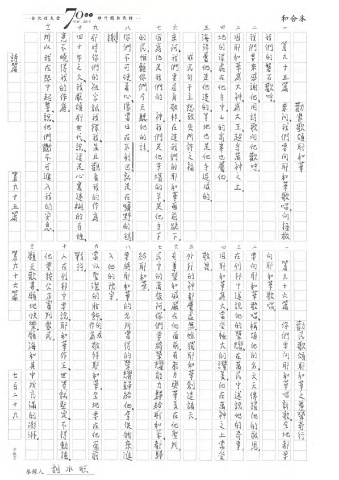 和合本
70
歡樂頌讚耶和華
一 第九十五篇 來阿我們要向耶和華歌唱向拯救
我們的磐石歡呼
二 我們要來感謝他用詩歌向他歡呼
三 因耶和華為大神為大王超乎萬神之上
四 地的深處在他手中山的高峯也屬他
五 海洋屬他是他造的旱地也是他手造成的
六 來阿我們要屈身敬拜在造我們的耶和華面前跪下
七 因為他是我們的神我們是他草場的羊是他手下
的民惟願你們今天聽他的話
八 你們不可硬着心像當日在米利巴就是在曠野的瑪撒
九 那時你們的祖宗試我探我並且觀看我的作為
十 四十年之久我厭煩那世代說這是心裏迷糊的百姓
竟不曉得我的作為
十一 所以我在怒中起誓說他們斷不可進入我的安息
詩篇 第九十五篇
一 第九十六篇 你們要向耶和華唱新歌全地都要
向耶和華歌唱
二 要向耶和華歌唱稱頌他的名天天傳揚他的救恩
三 在列邦中述說他的榮耀在萬民中述說他的奇事
四 因耶和華為大當受極大的讚美他在萬神之上當受
敬畏
五 外邦的神都屬虛無惟獨耶和華創造諸天
六 有尊榮和威嚴在他面前有能力與華美在他聖所
七 民中的萬族阿你們要將榮耀能力歸給耶和華都歸
給耶和華
八 要將耶和華的名所當得的榮耀歸給他拿供物來進
入他的院宇
九 當以聖潔的妝飾敬拜耶和華全地要在他面前
戰抖
十 人在列邦中要說耶和華作王世界就堅定不得動搖
他要按公正審判眾民
十一 願天歡喜願地快樂願海和其中所充滿的澎湃
第九十六篇
七百二十九